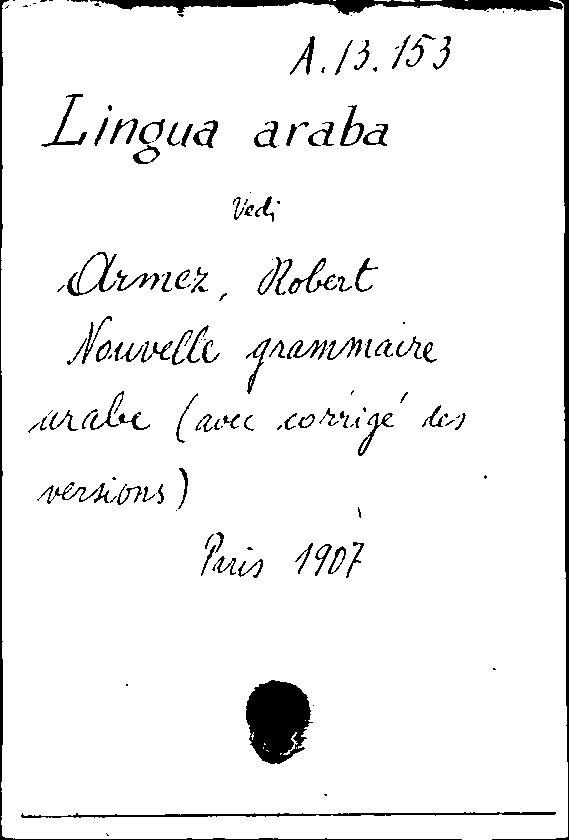 A.13.153
Lingua araba
Vedi
Armez, Robert
Nouvelle grammaire
arabe (avec corrigé des
versions)
Paris 1907